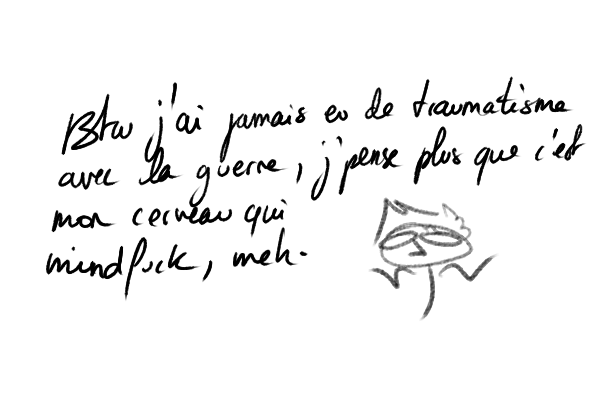 Btw j'ai jamais eu de traumatisme
avec la guerre, j'pense plus que c'est
mon cerveau qui
mindfuck, meh.